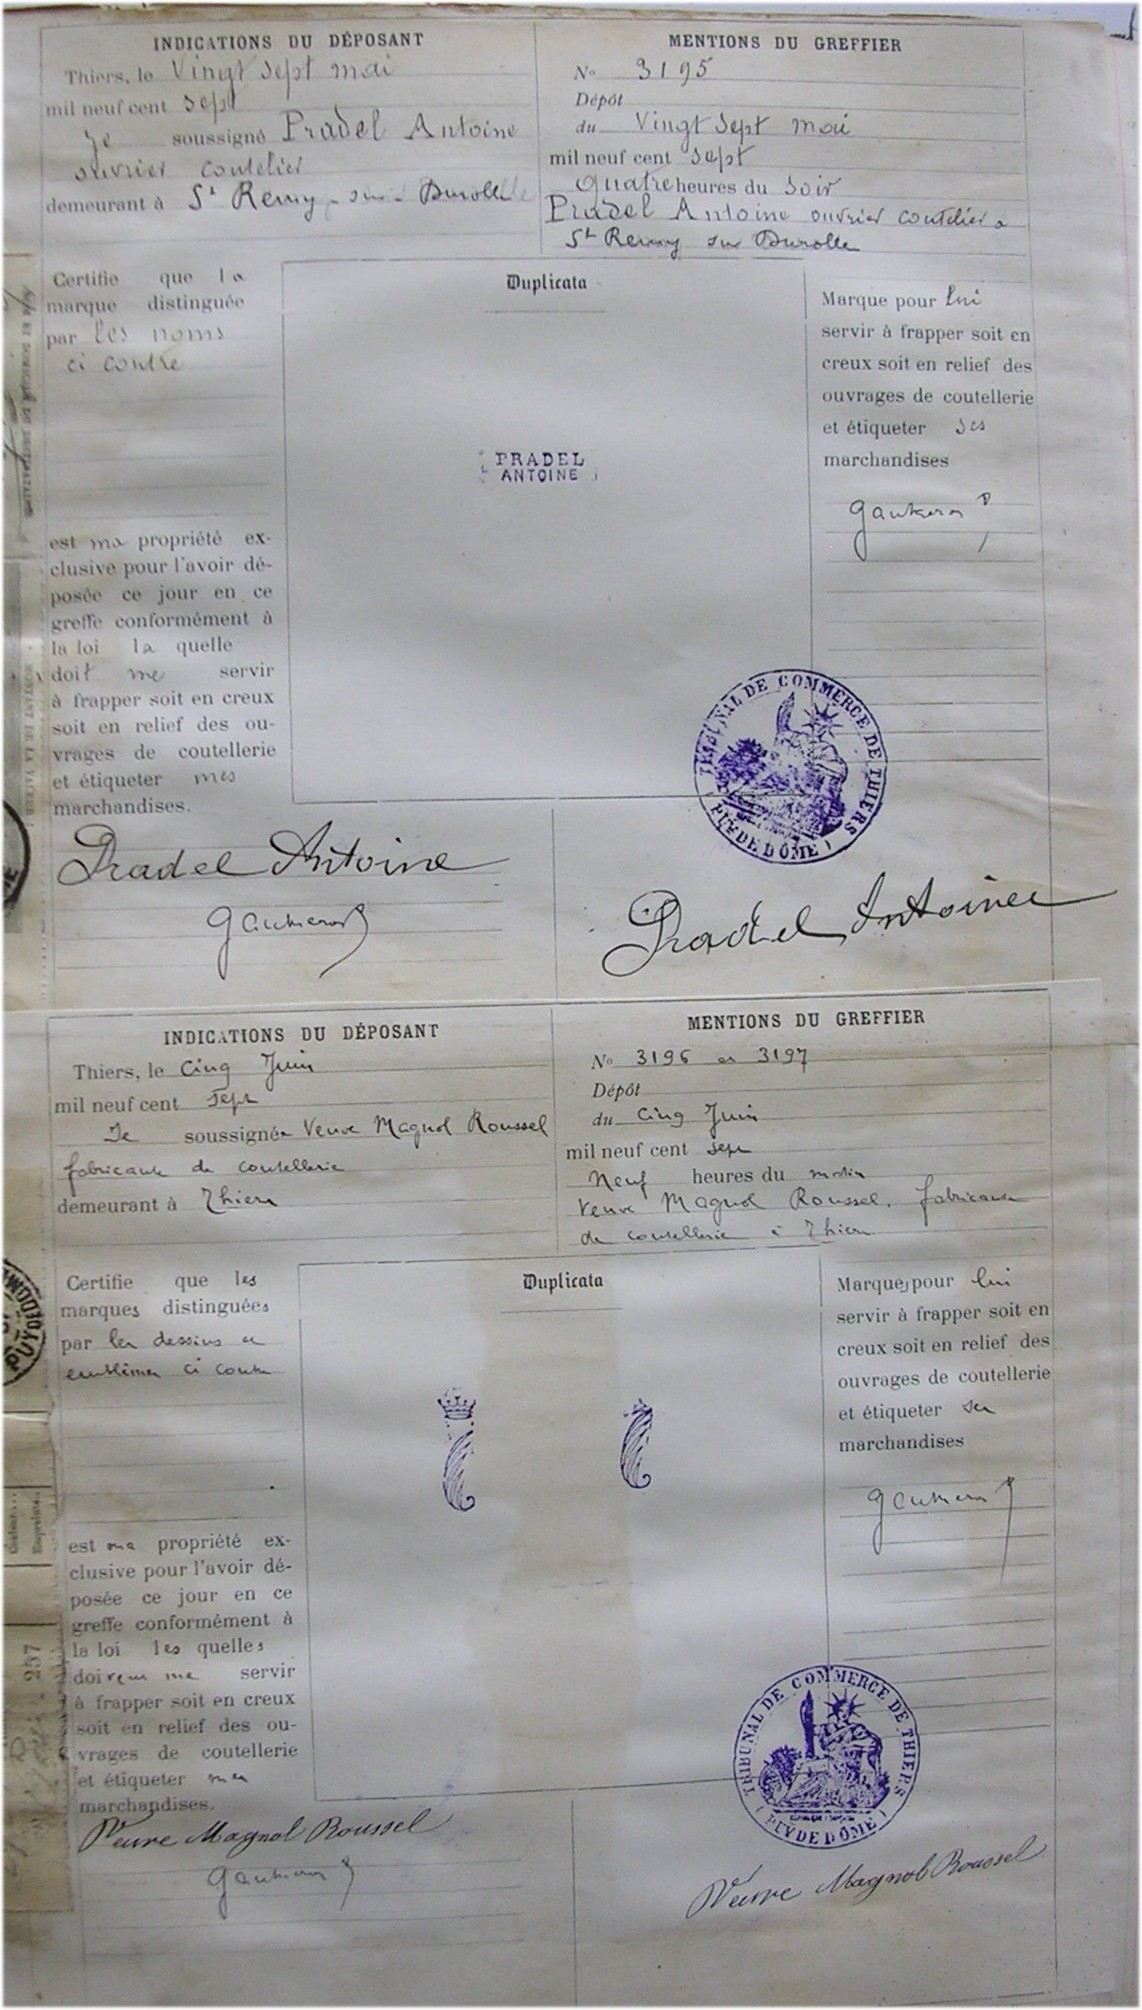 INDICATIONS DU DÉPOSANT
Thiers, le Vingt sept mai
mil neuf cent sept
Je soussigné Pradel Antoine
ouvrier coutelier
demeurant à St Remy-sur-Durolle
MENTIONS DU GREFFIER
No 3195
Dépôt
du Vingt sept mai
mil neuf cent sept
quatre heures du soir
Pradel Antoine ouvrier coutelier a
St Remy sur Durolle
Certifie que la
marque distinguée
par les noms
ci contre
est ma propriété ex-
clusive pour l'avoir dé-
posée ce jour en ce
greffe conformément à
la loi la quelle
doit me servir
à frapper soit en creux
soit en relief des ou-
vrages de coutellerie
et étiqueter mes
marchandises.
Duplicata
PRADEL
ANTOINE
Marque pour lui
servir à frapper soit en
creux soit en relief des
ouvrages de coutellerie
et étiqueter ses
marchandises
TRIBUNAL DE COMMERCE DE THIERS
(PUY DE DÔME)
Pradel Antoine
Pradel Antoine
INDICATIONS DU DÉPOSANT
Thiers, le Cinq Juin
mil neuf cent sept
Je soussignée Veuve Magnol Roussel
fabricante de coutellerie
demeurant à Thiers
MENTIONS DU GREFFIER
No 3196 et 3197
Dépôt
du Cinq Juin
mil neuf cent sept
Neuf heures du matin
Veuve Magnol Roussel, fabricante
de coutellerie à Thiers
Certifie que les
marques distinguées
par les dessins et
emblèmes ci contre
est ma propriété ex-
clusive pour l'avoir dé-
posée ce jour en ce
greffe conformément à
la loi les quelles
doivent me servir
à frapper soit en creux
soit en relief des ou-
vrages de coutellerie
et étiqueter mes
marchandises.
Duplicata
Marques pour lui
servir à frapper soit en
creux soit en relief des
ouvrages de coutellerie
et étiqueter ses
marchandises
TRIBUNAL DE COMMERCE DE THIERS
(PUY DE DÔME)
Veuve Magnol Roussel
Veuve Magnol Roussel
257